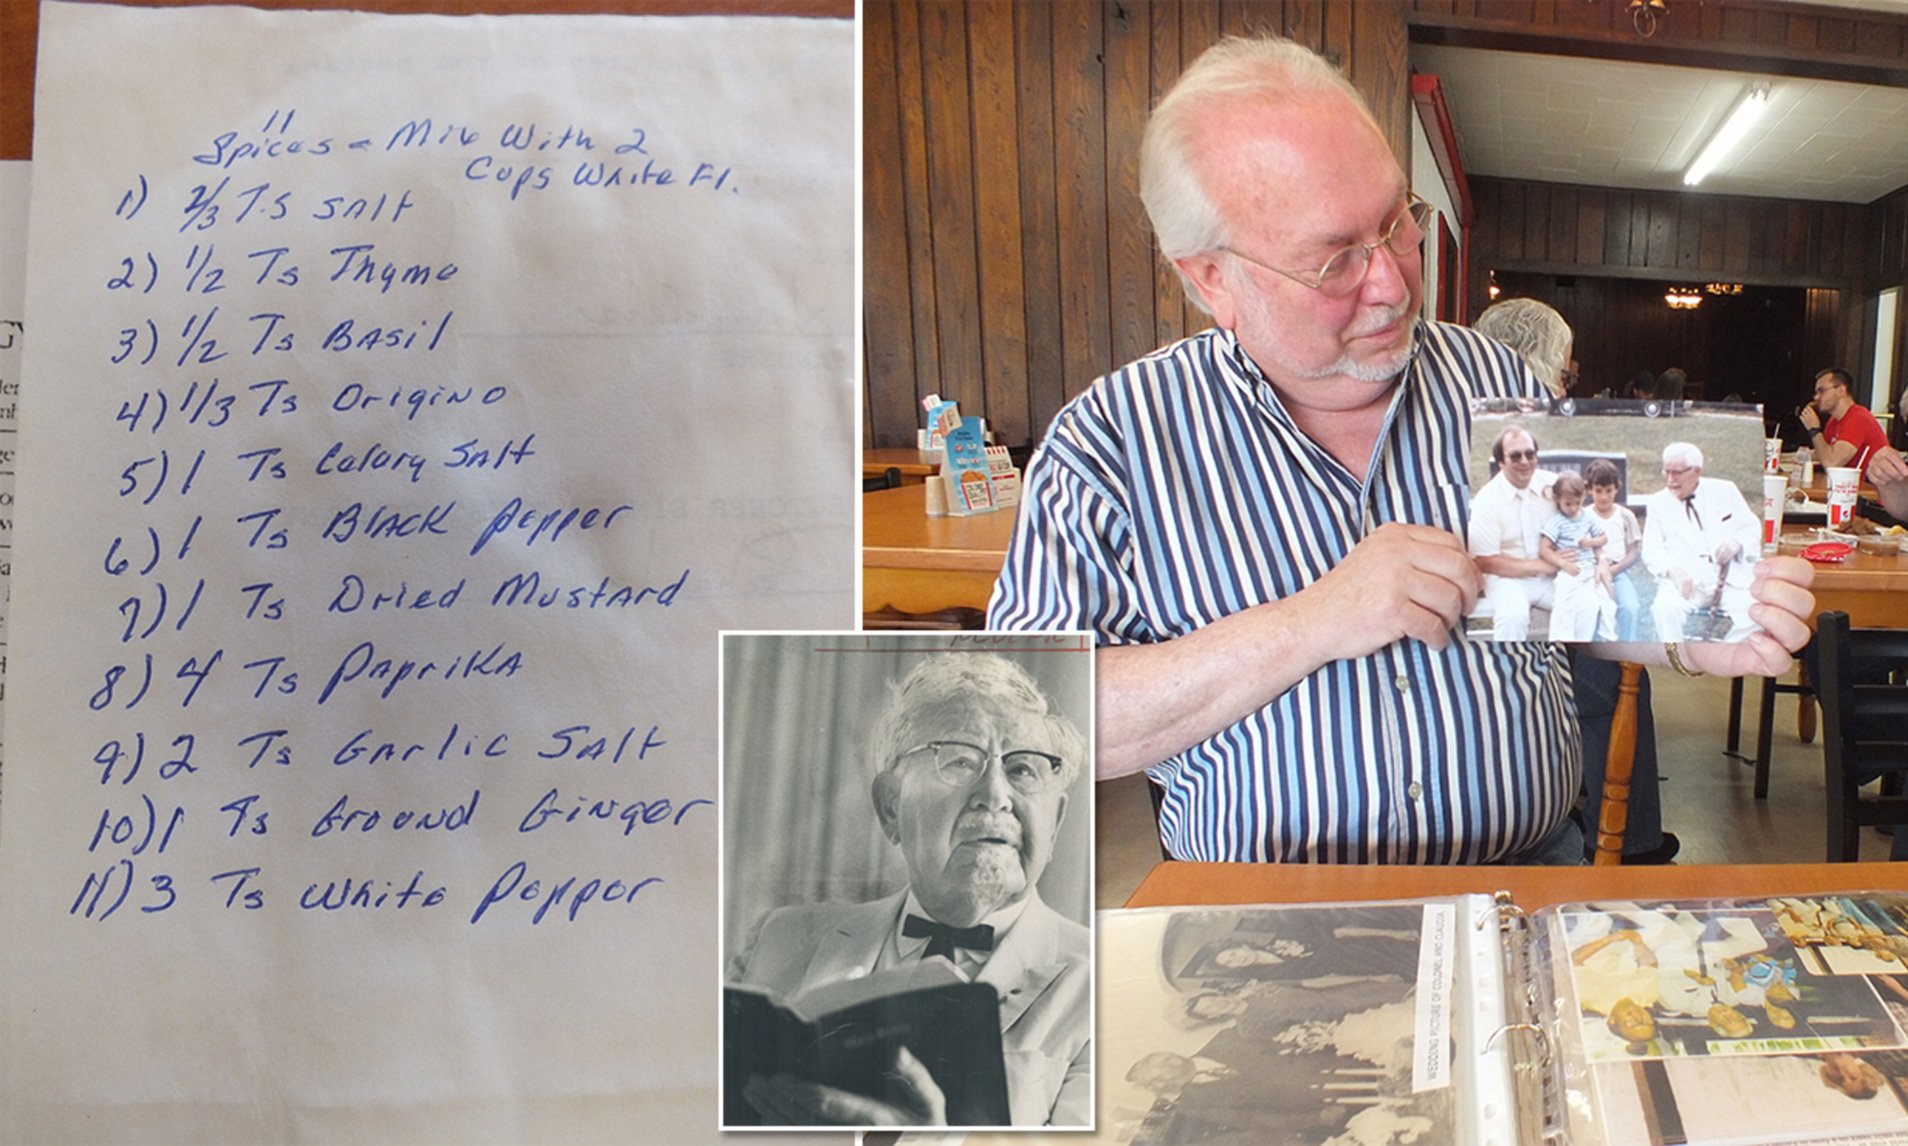 11
Spices - Mix With 2
Cups White Fl.
1) 2/3 T.S SAlt
2) 1/2 Ts Thyme
3) 1/2 Ts BAsil
4) 1/3 Ts OrigiNo
5) 1 Ts Celery SAlt
6) 1 Ts BlACK Pepper
7) 1 Ts Dried MustArd
8) 4 Ts PAprikA
9) 2 Ts GArlic SAlt
10) 1 Ts Ground Ginger
11) 3 Ts White Pepper
WEDDING PICTURE OF COLONEL AND CLAUDIA